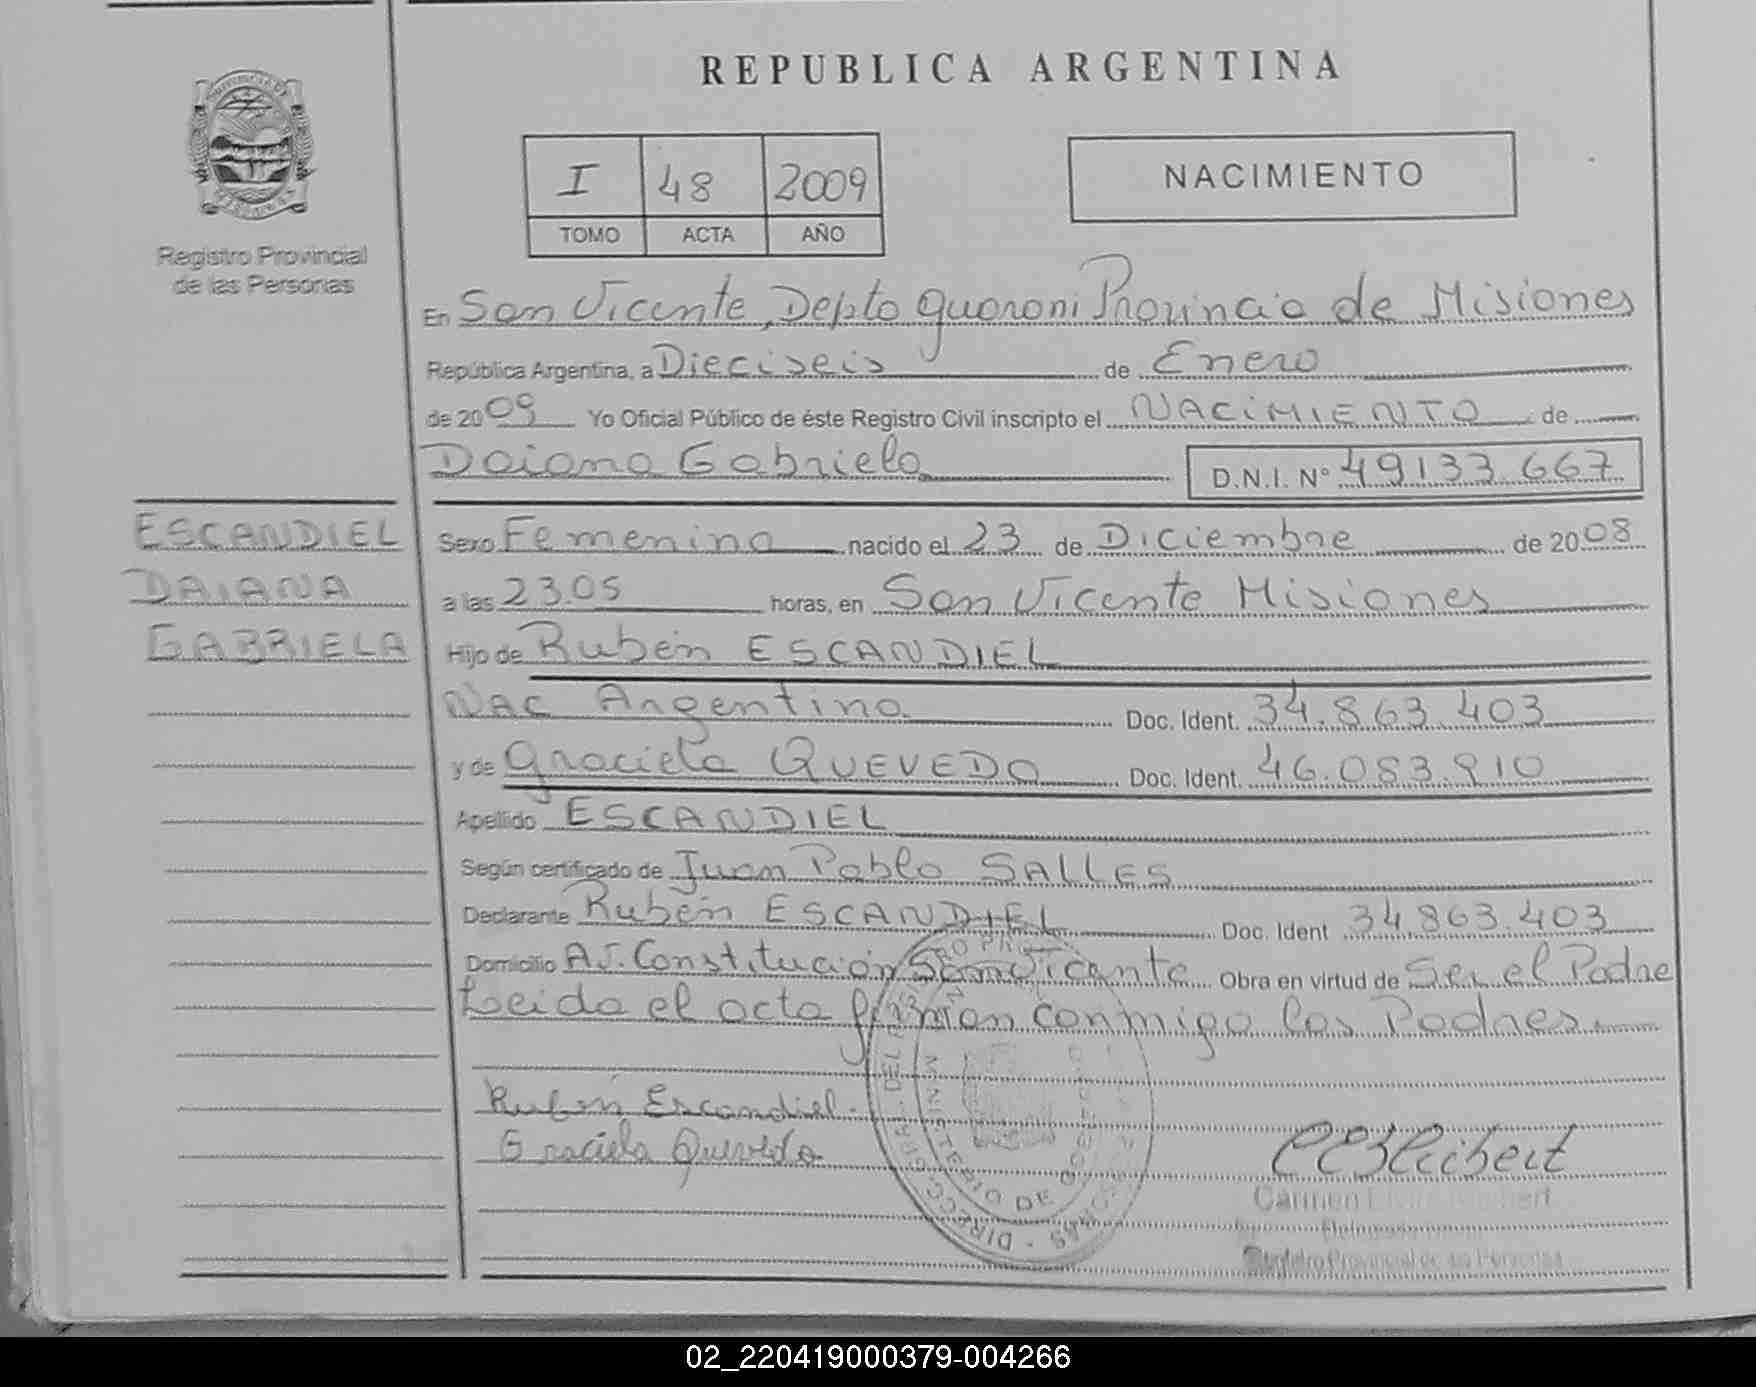 REPUBLICA ARGENTINA
I 48 2009
TOMO ACTA AÑO
NACIMIENTO
Registro Provincial
de las Personas
En San Vicente, Depto Guarani Provincia de Misiones
República Argentina, a Dieciseis de Enero
de 2009 Yo Oficial Público de éste Registro Civil inscripto el NACIMIENTO de
Daiana Gabriela D.N.I. Nº 49133.667
ESCANDIEL
DAIANA
GABRIELA
Sexo Femenino nacido el 23 de Diciembre de 2008
a las 23.05 horas, en San Vicente Misiones
Hijo de Rubén ESCANDIEL
Nac Argentina Doc. Ident. 34.863.403
y de Graciela QUEVEDO Doc. Ident. 46.083.910
Apellido ESCANDIEL
Según certificado de Juan Pablo SALLES
Declarante Rubén ESCANDIEL Doc. Ident 34.863.403
Domicilio AV. Constitución San Vicente Obra en virtud de Ser el Padre
Leida el acta firman conmigo los Padres.
Rubén Escandiel
Graciela Quevedo
MINISTERIO DE
DIRECC. GRAL. DEL
Carmen
Registro Provincial de las Personas
02_220419000379-004266